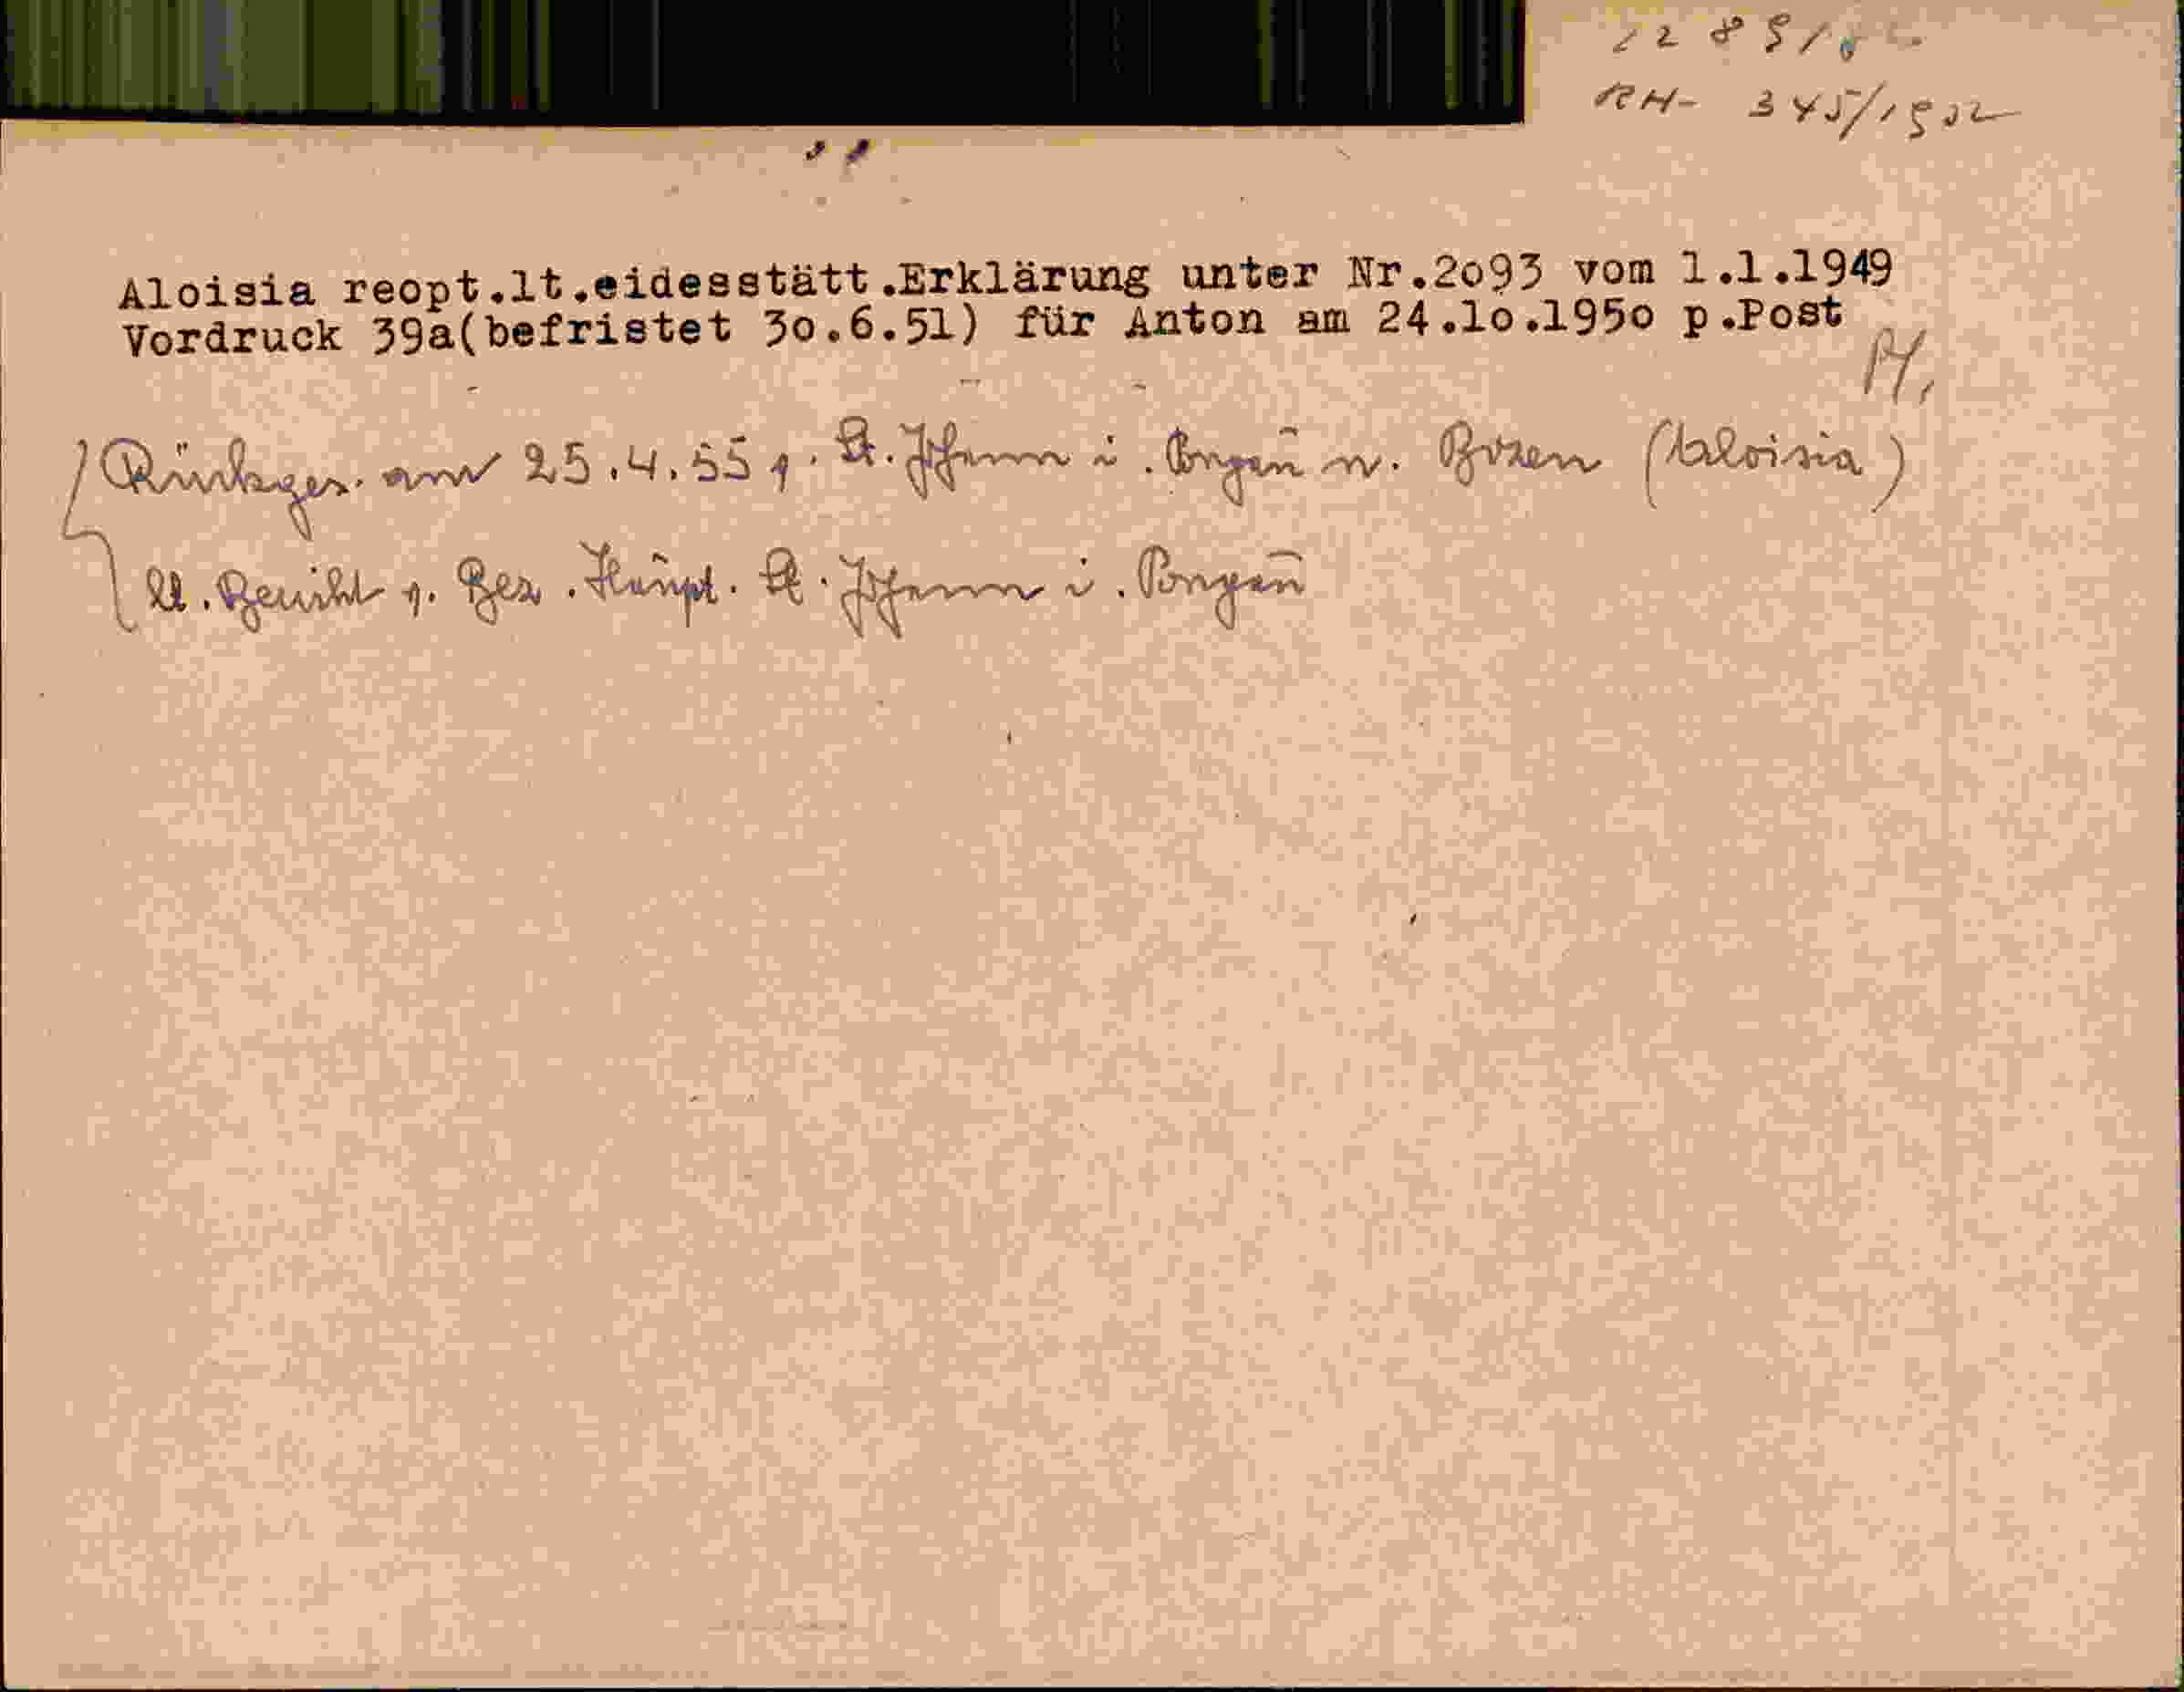 RH- 345/1952
Aloisia reopt.lt.eidesstätt.Erklärung unter Nr.2o93 vom 1.1.1949
Vordruck 39a(befristet 3o.6.51) für Anton am 24.1o.195o p.Post
Rücksger. am 25.4.55 v. St. Johann i. Pongau n. Bozen (Aloisia)
lt. Bericht v. Bez. Haupt. St. Johann i. Pongau